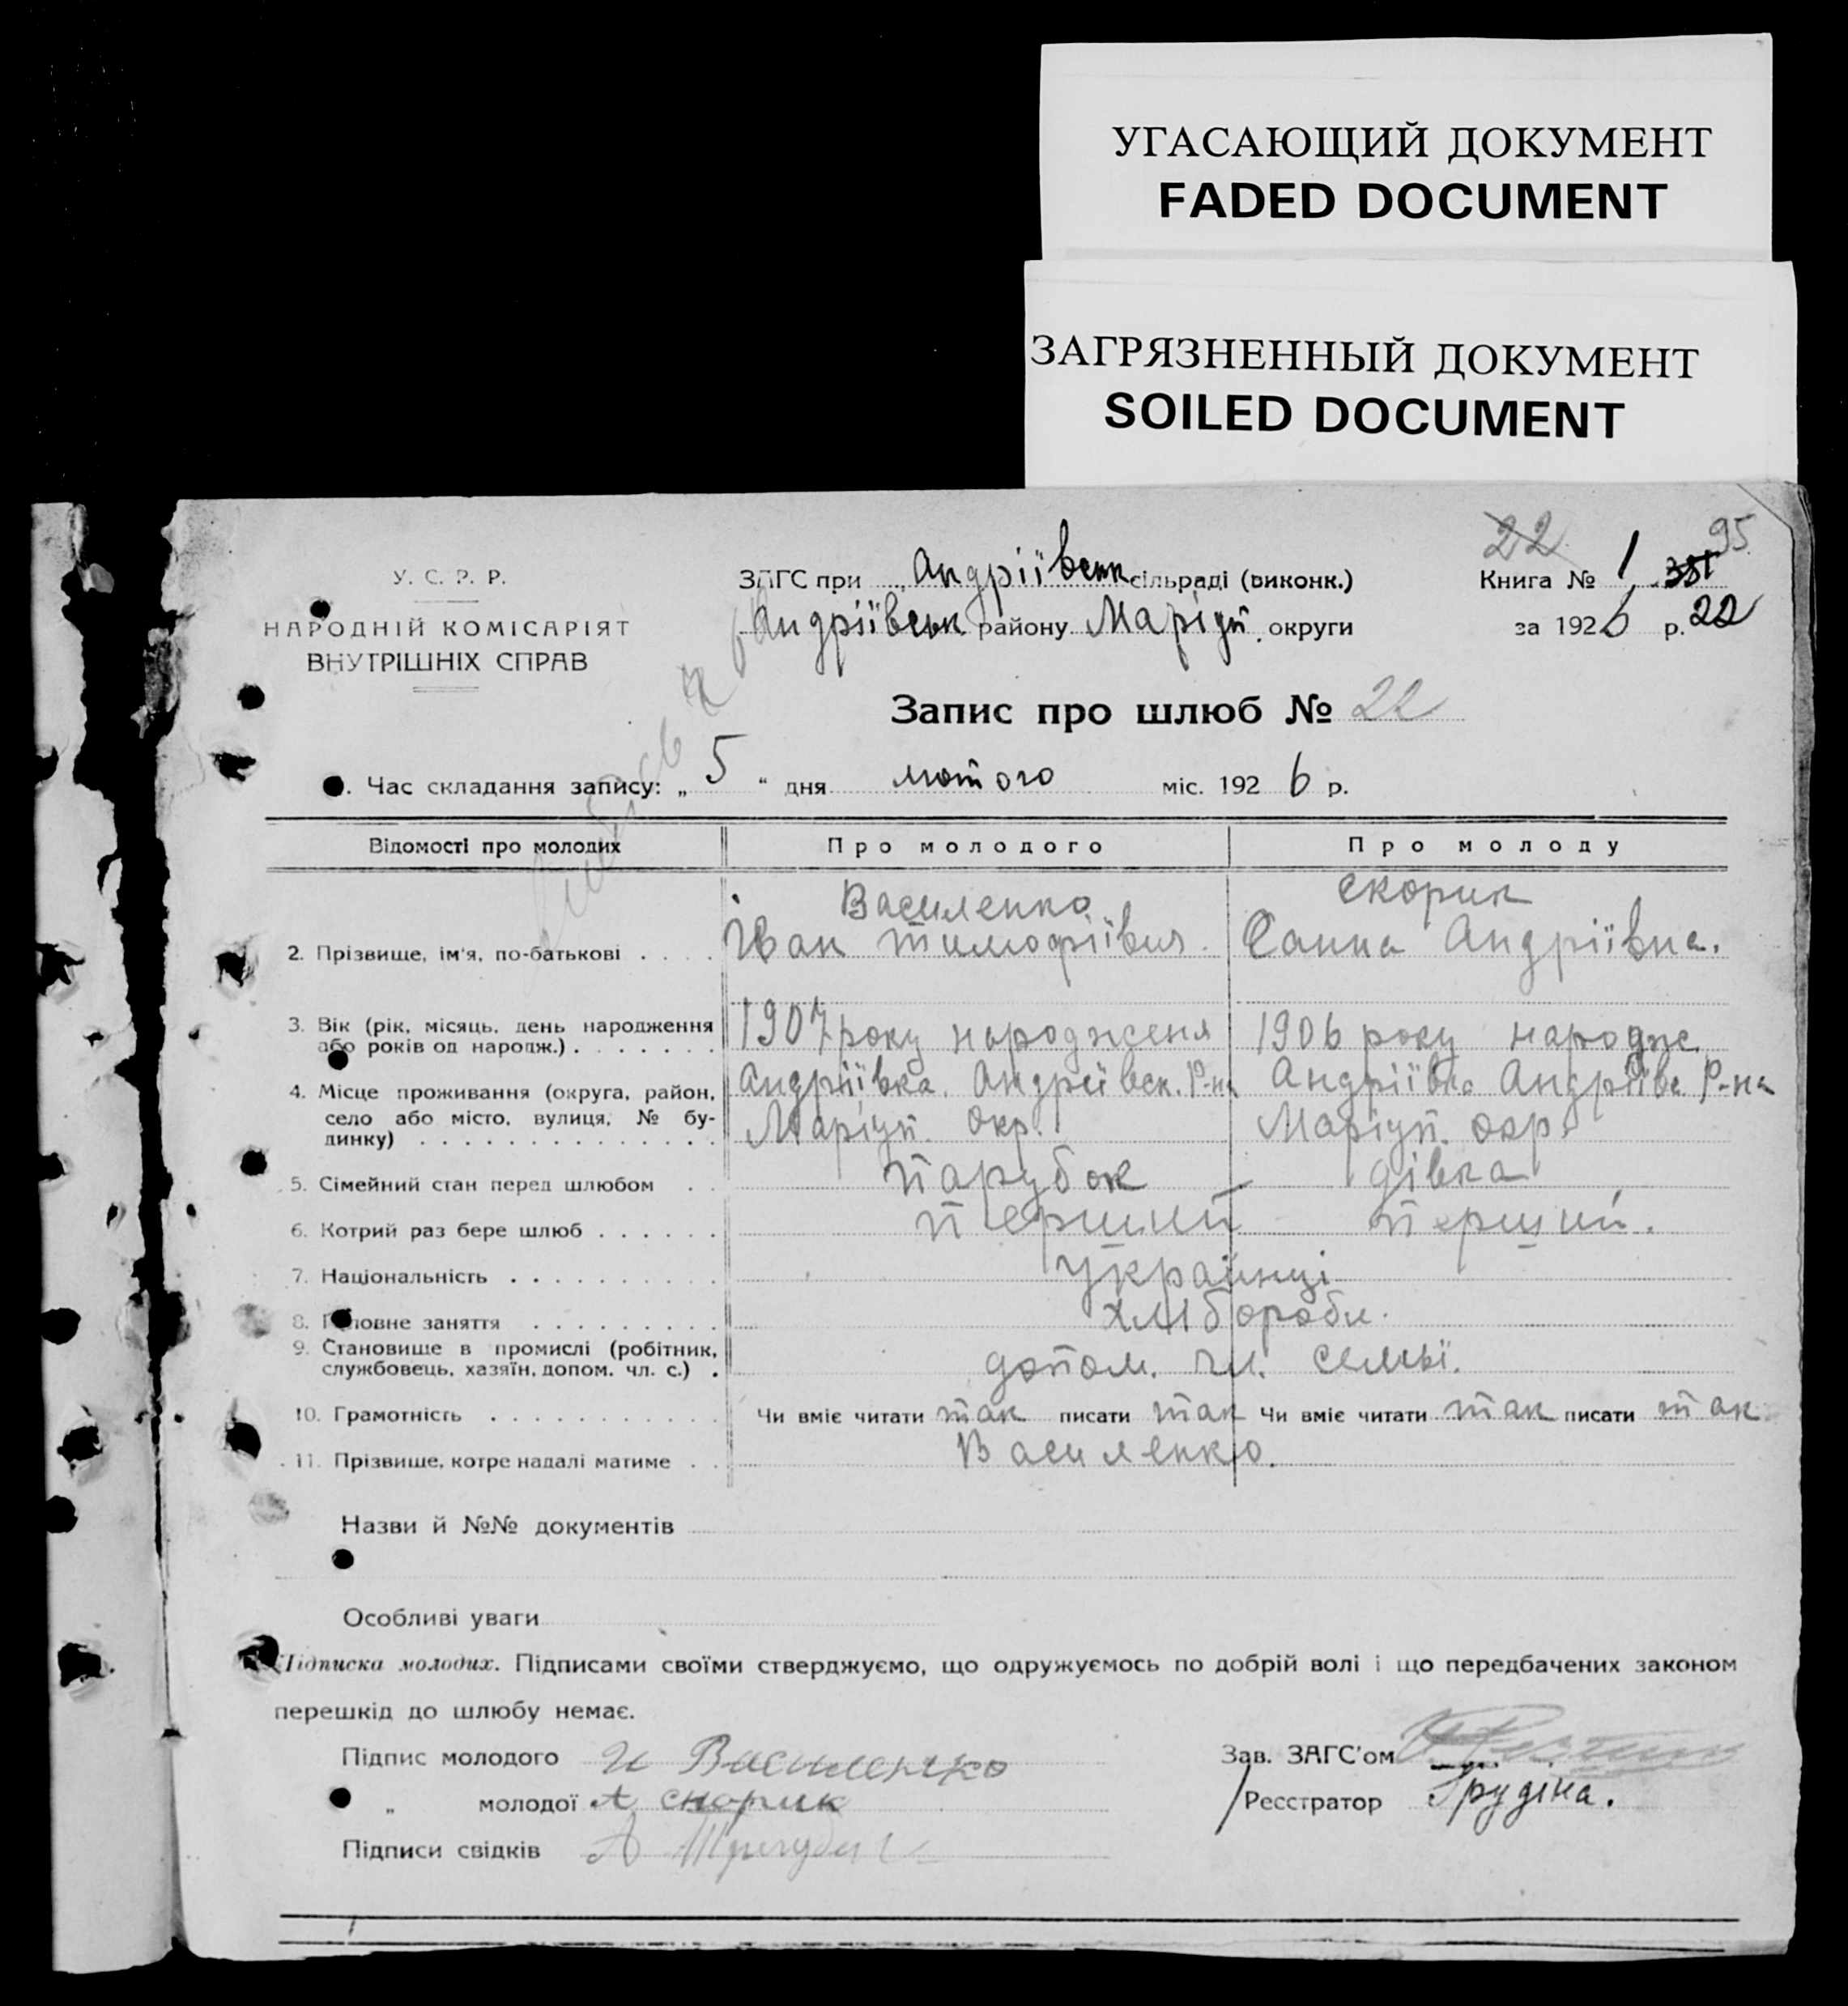 УГАСАЮЩИЙ ДОКУМЕНТ
FADED DOCUMENT
ЗАГРЯЗНЕННЫЙ ДОКУМЕНТ
SOILED DOCUMENT
22 95
У. С. Р. Р.
НАРОДНІЙ КОМІСАРІЯТ
ВНУТРІШНІХ СПРАВ
ЗАГС при Андріївськ сільраді (виконк.)
Андріївськ району Маріуп. округи
Книга № 1 351
за 1926 р. 22
Запис про шлюб № 22
1. Час складання запису: „ 5 “ дня лютого міс. 1926 р.
Відомості про молодих Про молодого Про молоду
2. Прізвище, ім'я, по-батькові . . . . Василенко Іван Тимофіївич. Скорик Ганна Андріївна.
3. Вік (рік, місяць, день народження або років од народж.) . . . . . . . 1907 року народженя 1906 року народж.
4. Місце проживання (округа, район, село або місто, вулиця, № будинку) . . . . . . . . . . . . . . Андріївка. Андреївск. Р-на Маріуп. Окр. Андріївка Андріївс. Р-на Маріуп. окр.
5. Сімейний стан перед шлюбом . . парубок дівка
6. Котрий раз бере шлюб . . . . . . перший перший.
7. Національність . . . . . . . . . . українці
8. Головне заняття . . . . . . . . . хлібороби.
9. Становище в промислі (робітник, службовець, хазяїн, допом. чл. с.) . допом. чл. семьї.
10. Грамотність . . . . . . . . . . . Чи вміє читати так писати так Чи вміє читати так писати так
11. Прізвище, котре надалі матиме . . Василенко.
Назви й №№ документів
Особливі уваги
Підписка молодих. Підписами своїми стверджуємо, що одружуємось по добрій волі і що передбачених законом
перешкід до шлюбу немає.
Підпис молодого И Василенко Зав. ЗАГС'ом
„ молодої А Скорик Реєстратор Грудіна.
Підписи свідків А